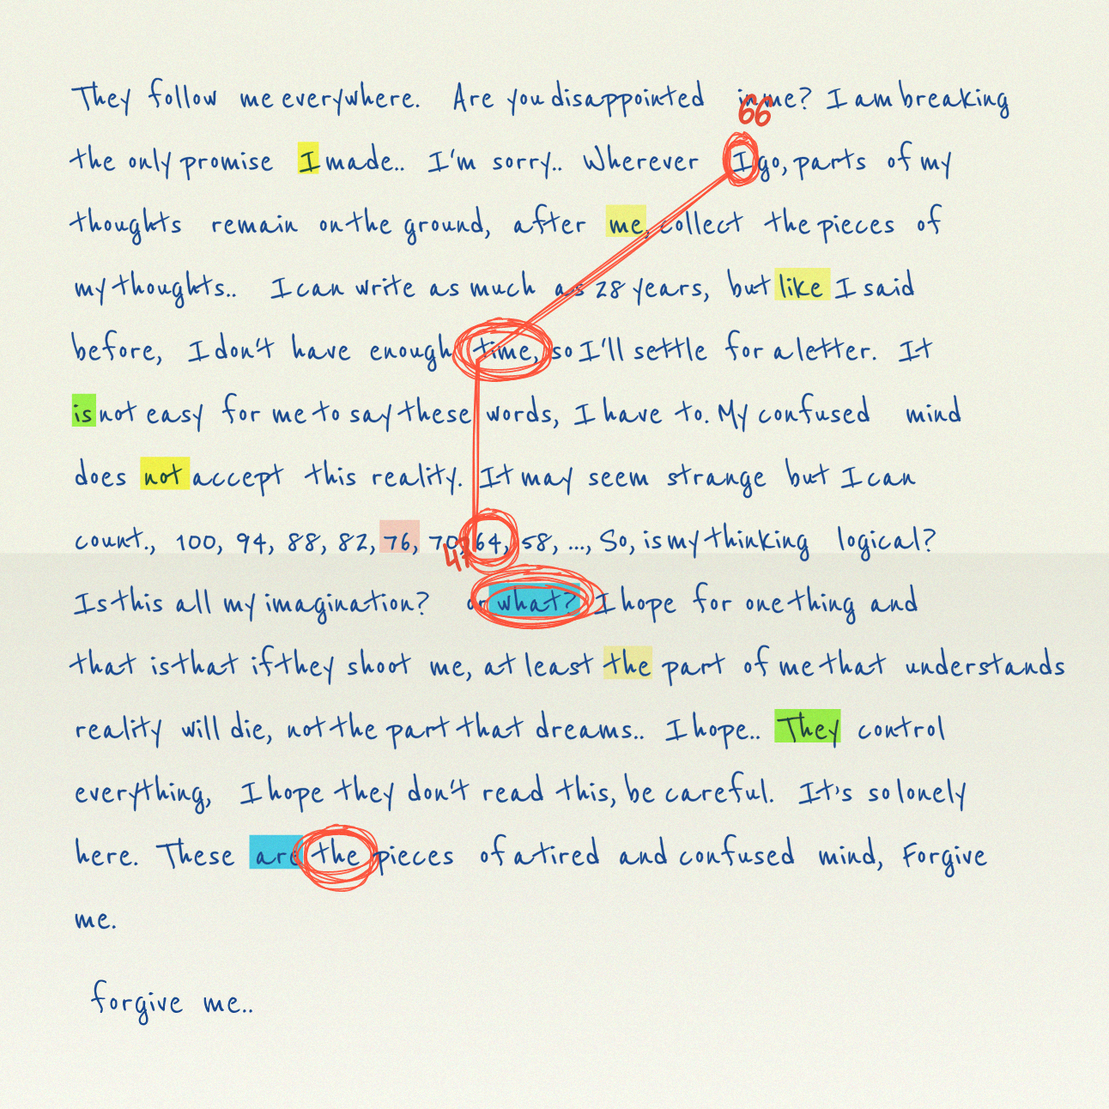 They follow me everywhere. Are you disappointed in me? I am breaking
66
the only promise I made.. I'm sorry.. Wherever I go, parts of my
thoughts remain on the ground, after me, collect the pieces of
my thoughts.. I can write as much as 28 years, but like I said
before, I don't have enough time, so I'll settle for a letter. It
is not easy for me to say these words, I have to. My confused mind
does not accept this reality. It may seem strange but I can
count., 100, 94, 88, 82, 76, 70, 64, 58, ..., So, is my thinking logical?
Is this all my imagination? or what? I hope for one thing and
that is that if they shoot me, at least the part of me that understands
reality will die, not the part that dreams.. I hope.. They control
everything, I hope they don't read this, be careful. It's so lonely
here. These are the pieces of a tired and confused mind, Forgive
me.
forgive me..